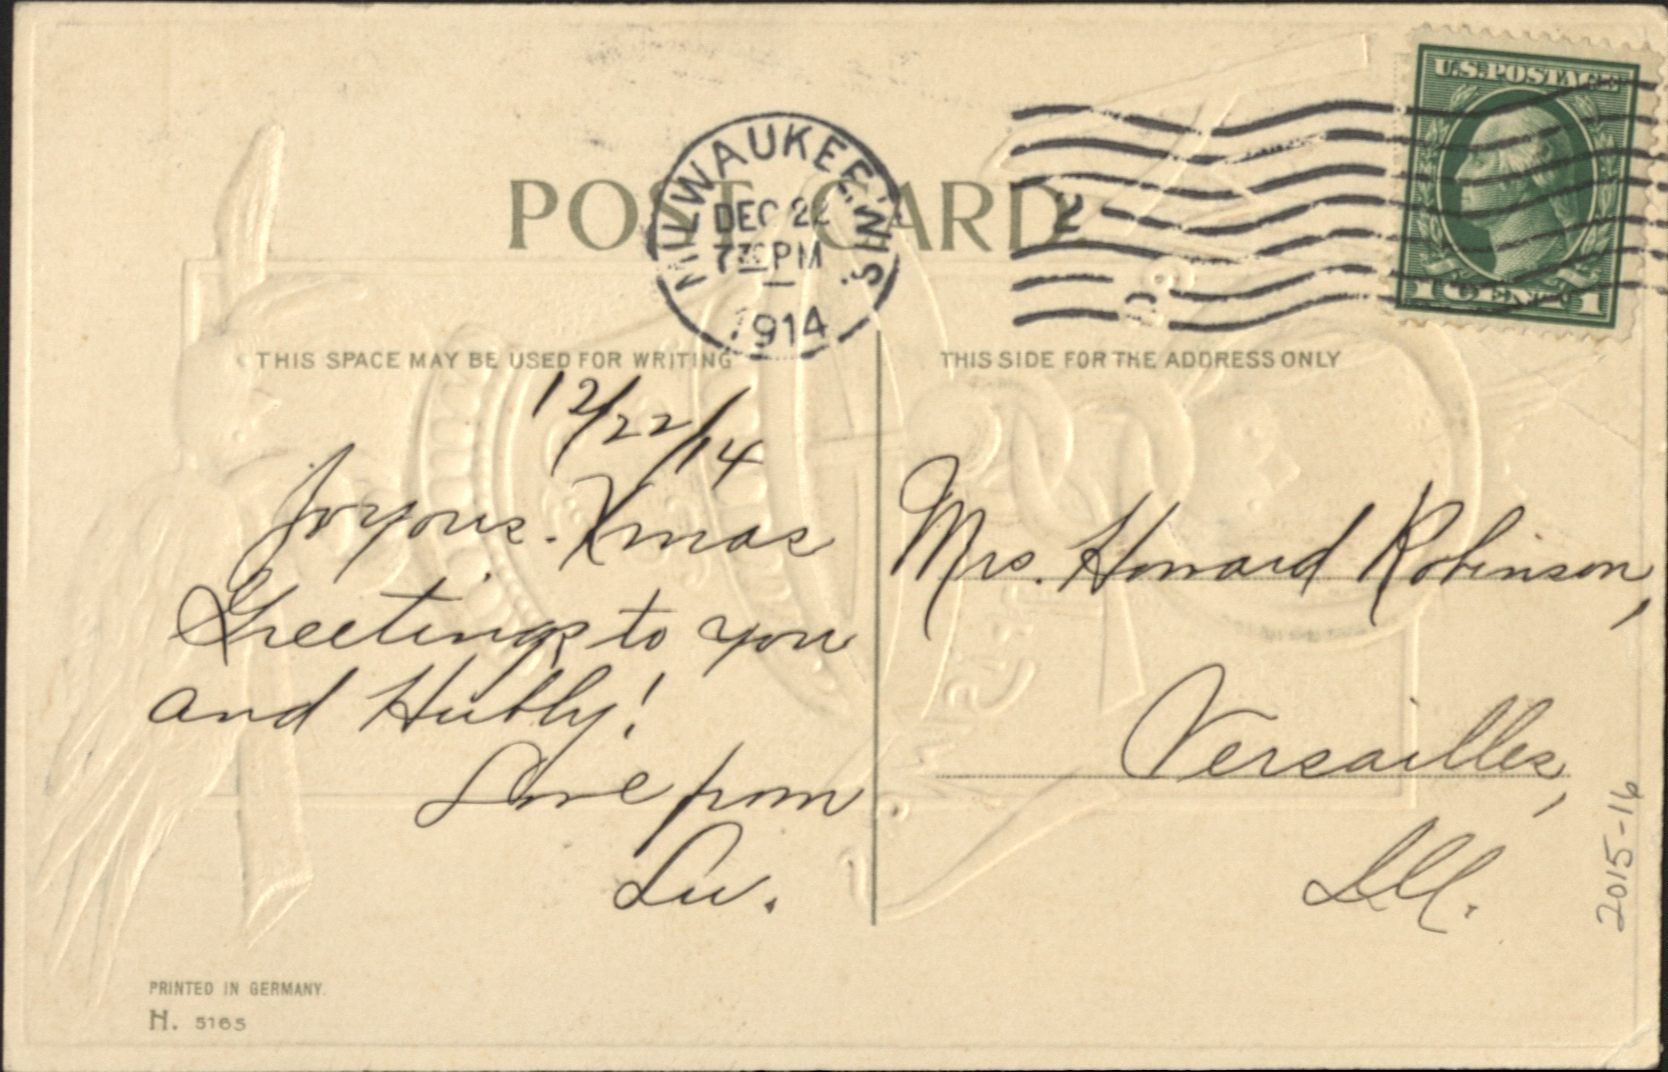 U.S. POSTAGE
1 CENT 1
MILWAUKEE, WIS.
DEC 22
730 PM
1914
POST CARD
THIS SPACE MAY BE USED FOR WRITING
12/22/14
Joyous. Xmas
Greetings to you
and Hubby!
Love from
Lu.
PRINTED IN GERMANY.
H. 5165
THIS SIDE FOR THE ADDRESS ONLY
Mrs. Howard Robinson,
Versailles,
Ill.
2015-16